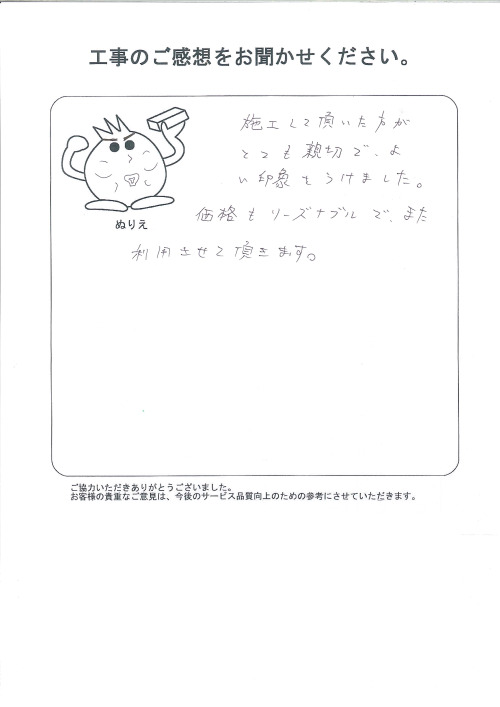 工事のご感想をお聞かせください。
施工して頂いた方が
とても親切で、よ
い印象をうけました。
価格もリーズナブルで、また
ぬりえ
利用させて頂きます。
ご協力いただきありがとうございました。
お客様の貴重なご意見は、今後のサービス品質向上のための参考にさせていただきます。